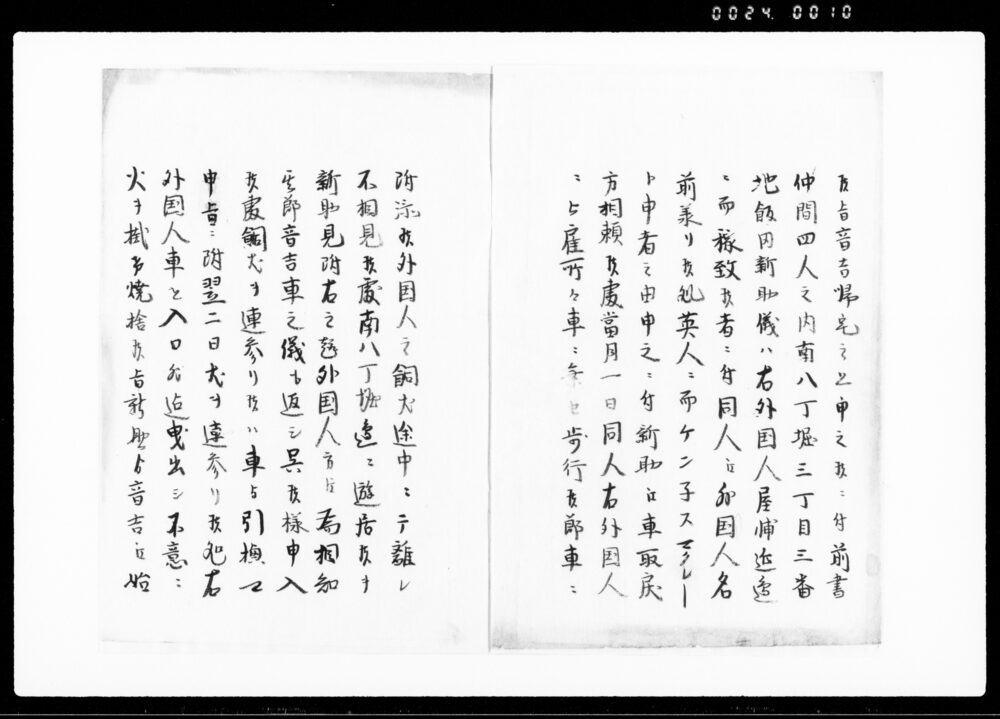 0024 0010
候旨音吉帰宅之上申之候ニ付前書
仲間四人之内南八丁堀三丁目三番
地飯田新助儀ハ右外国人屋舗近辺
ニ而稼致候者ニ付同人ゟ外国人名
前承リ候処英人ニ而ケン子スマクレー
ト申者之由申之ニ付新助ゟ車取戻
方相頼候処當月一日同人右外国人
ニ被雇所々車ニ乗セ歩行候節車ニ
附添候外国人之飼犬途中ニテ離レ
不相見候處南八丁堀辺ニ遊居候ヲ
新助見附右之趣外国人方江為相知
其節音吉車之儀も返シ呉候様申入
候處飼犬ヲ連参リ候ハ車ゟ引換可
申旨ニ附翌二日犬ヲ連参リ候処右
外国人車を入口外迄曳出シ不意ニ
火ヲ掛ケ焼捨候旨新助ゟ音吉江始